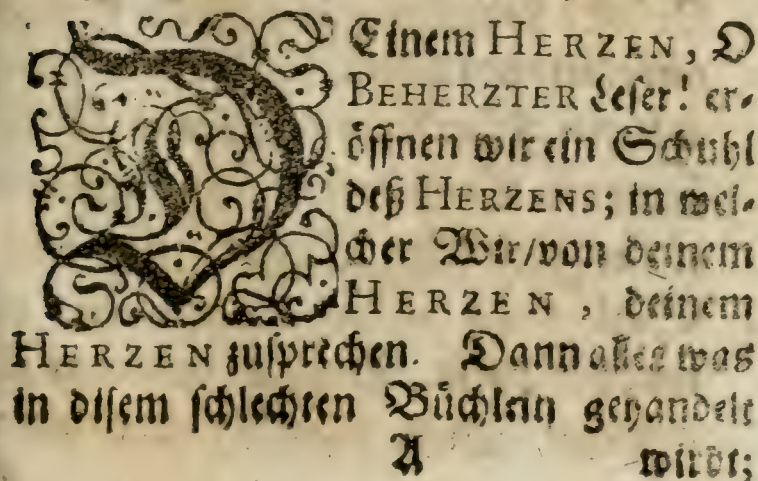 DEinem HERZEN, O
BEHERZTER Leser! er-
öffnen wir ein Schuhl
deß HERZENS; in wel-
cher Wir/von deinem
HERZEN, deinem
HERZEN zusprechen. Dann alles was
in disem schlechten Büchlein gehandelt
A wirdt;